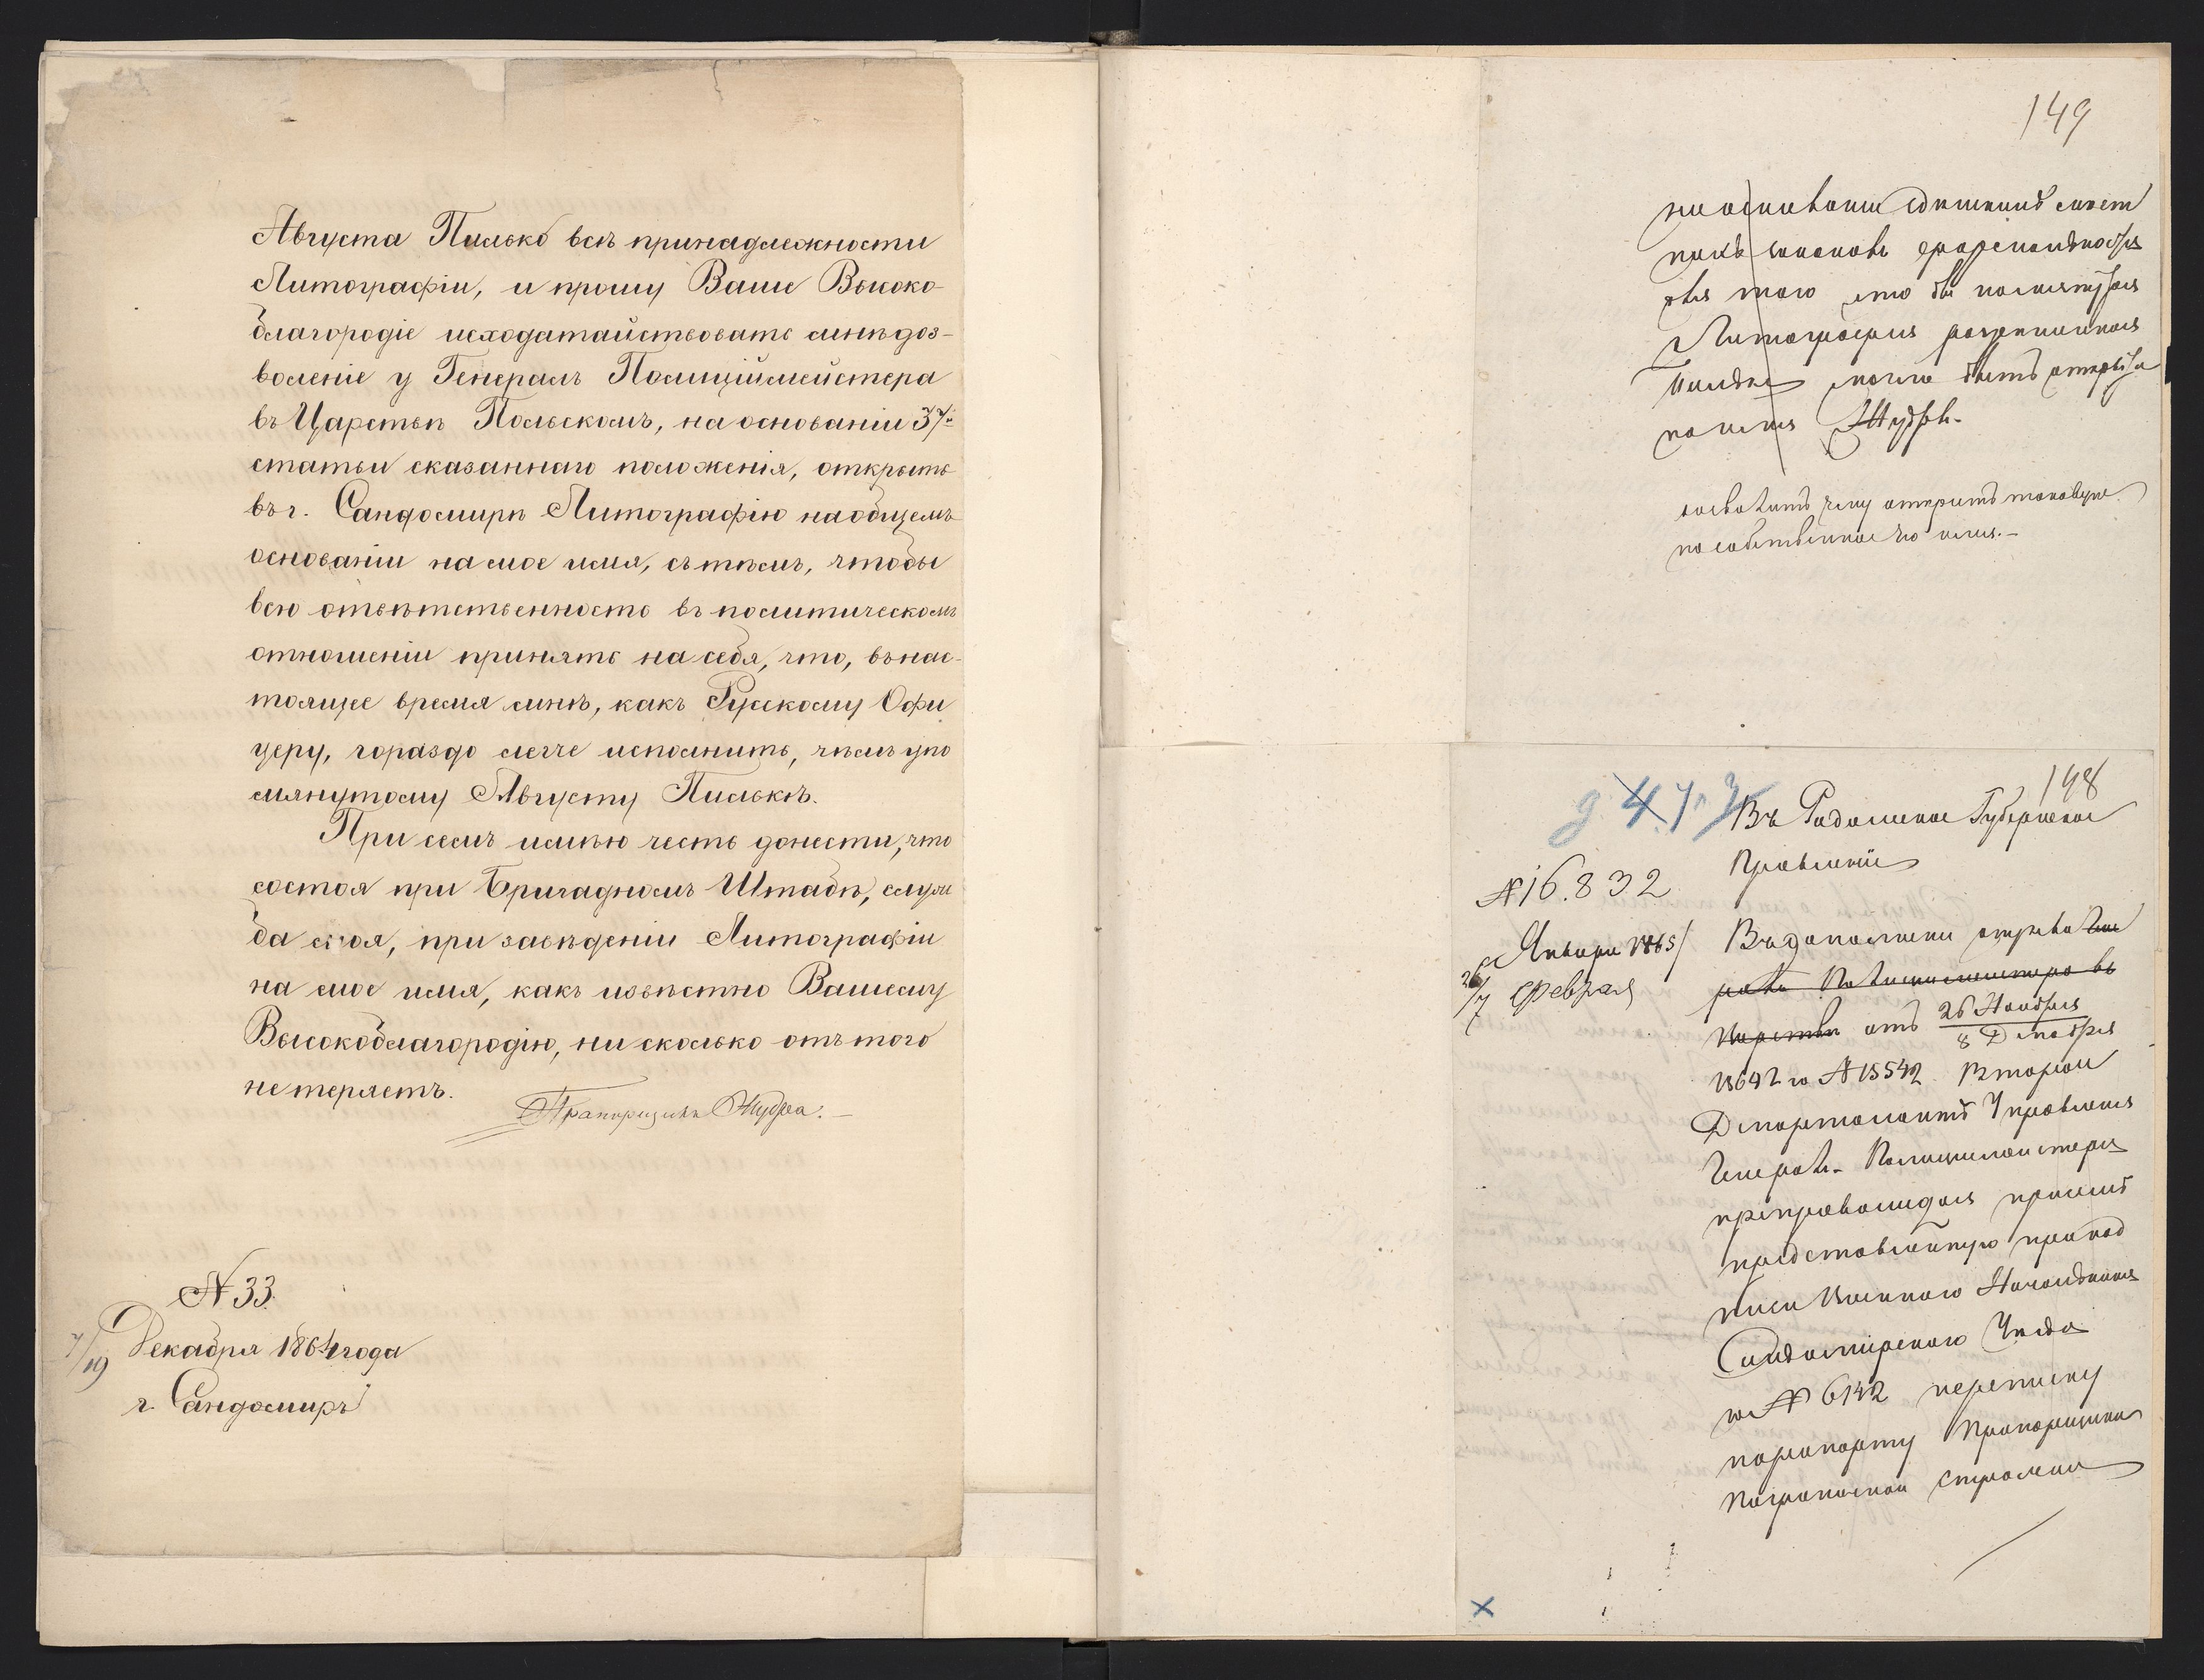 Августа Пилько всѣ принадлежности
Литографіи, и прошу Ваше Высоко-
благородіе исходатайствовать мнѣ доз-
воленіе у Генералъ Полиціймейстера
въ Царствѣ Польскомъ, на основаніи 37й
статьи сказаннаго положенія, открыть
въ г. Сандомирѣ Литографію на общемъ
основаніи на мое имя, съ тѣмъ, чтобы
всю отвѣтственность въ политическомъ
отношеніи принять на себя, что, въ нас-
тоящее время мнѣ, какъ Русскому Офи
церу, гораздо легче исполнить, чѣмъ упо
мянутому Августу Пилькѣ.
При семъ имѣю честь донести, что
состоя при Бригадномъ Штабѣ, служ
ба моя, при заведеніи Литографіи
на мое имя, какъ извѣстно Вашему
Высокоблагородію, ни сколько отъ того
не теряетъ.
Прапорщикъ Жудра.
№ 33.
7/19 Декабря 1864 года
г. Сандомиръ
149
для того что бы
Литографія разрѣшенная
могла быть открыта
на имя Жудры.
дозволить ему открыть таковую
на собственное его имя.
198
Въ Радомское Губернское
Правленіе
№ 16.832
26 Января 1865
/7 Февраля
Въ дополненіи
Полиціймейстера въ
Царствѣ отъ 26 Ноября
8 Декабря
1864 г. за № 15542 Второй
Департаментъ Управленія
Генералъ-Полиціймейстера
препровождая при семъ
представленную при над
писи Военнаго Начальника
Сандомірскаго Уѣзда
за № 6142 переписку
по рапорту Прапорщика
Пограничной Стражи